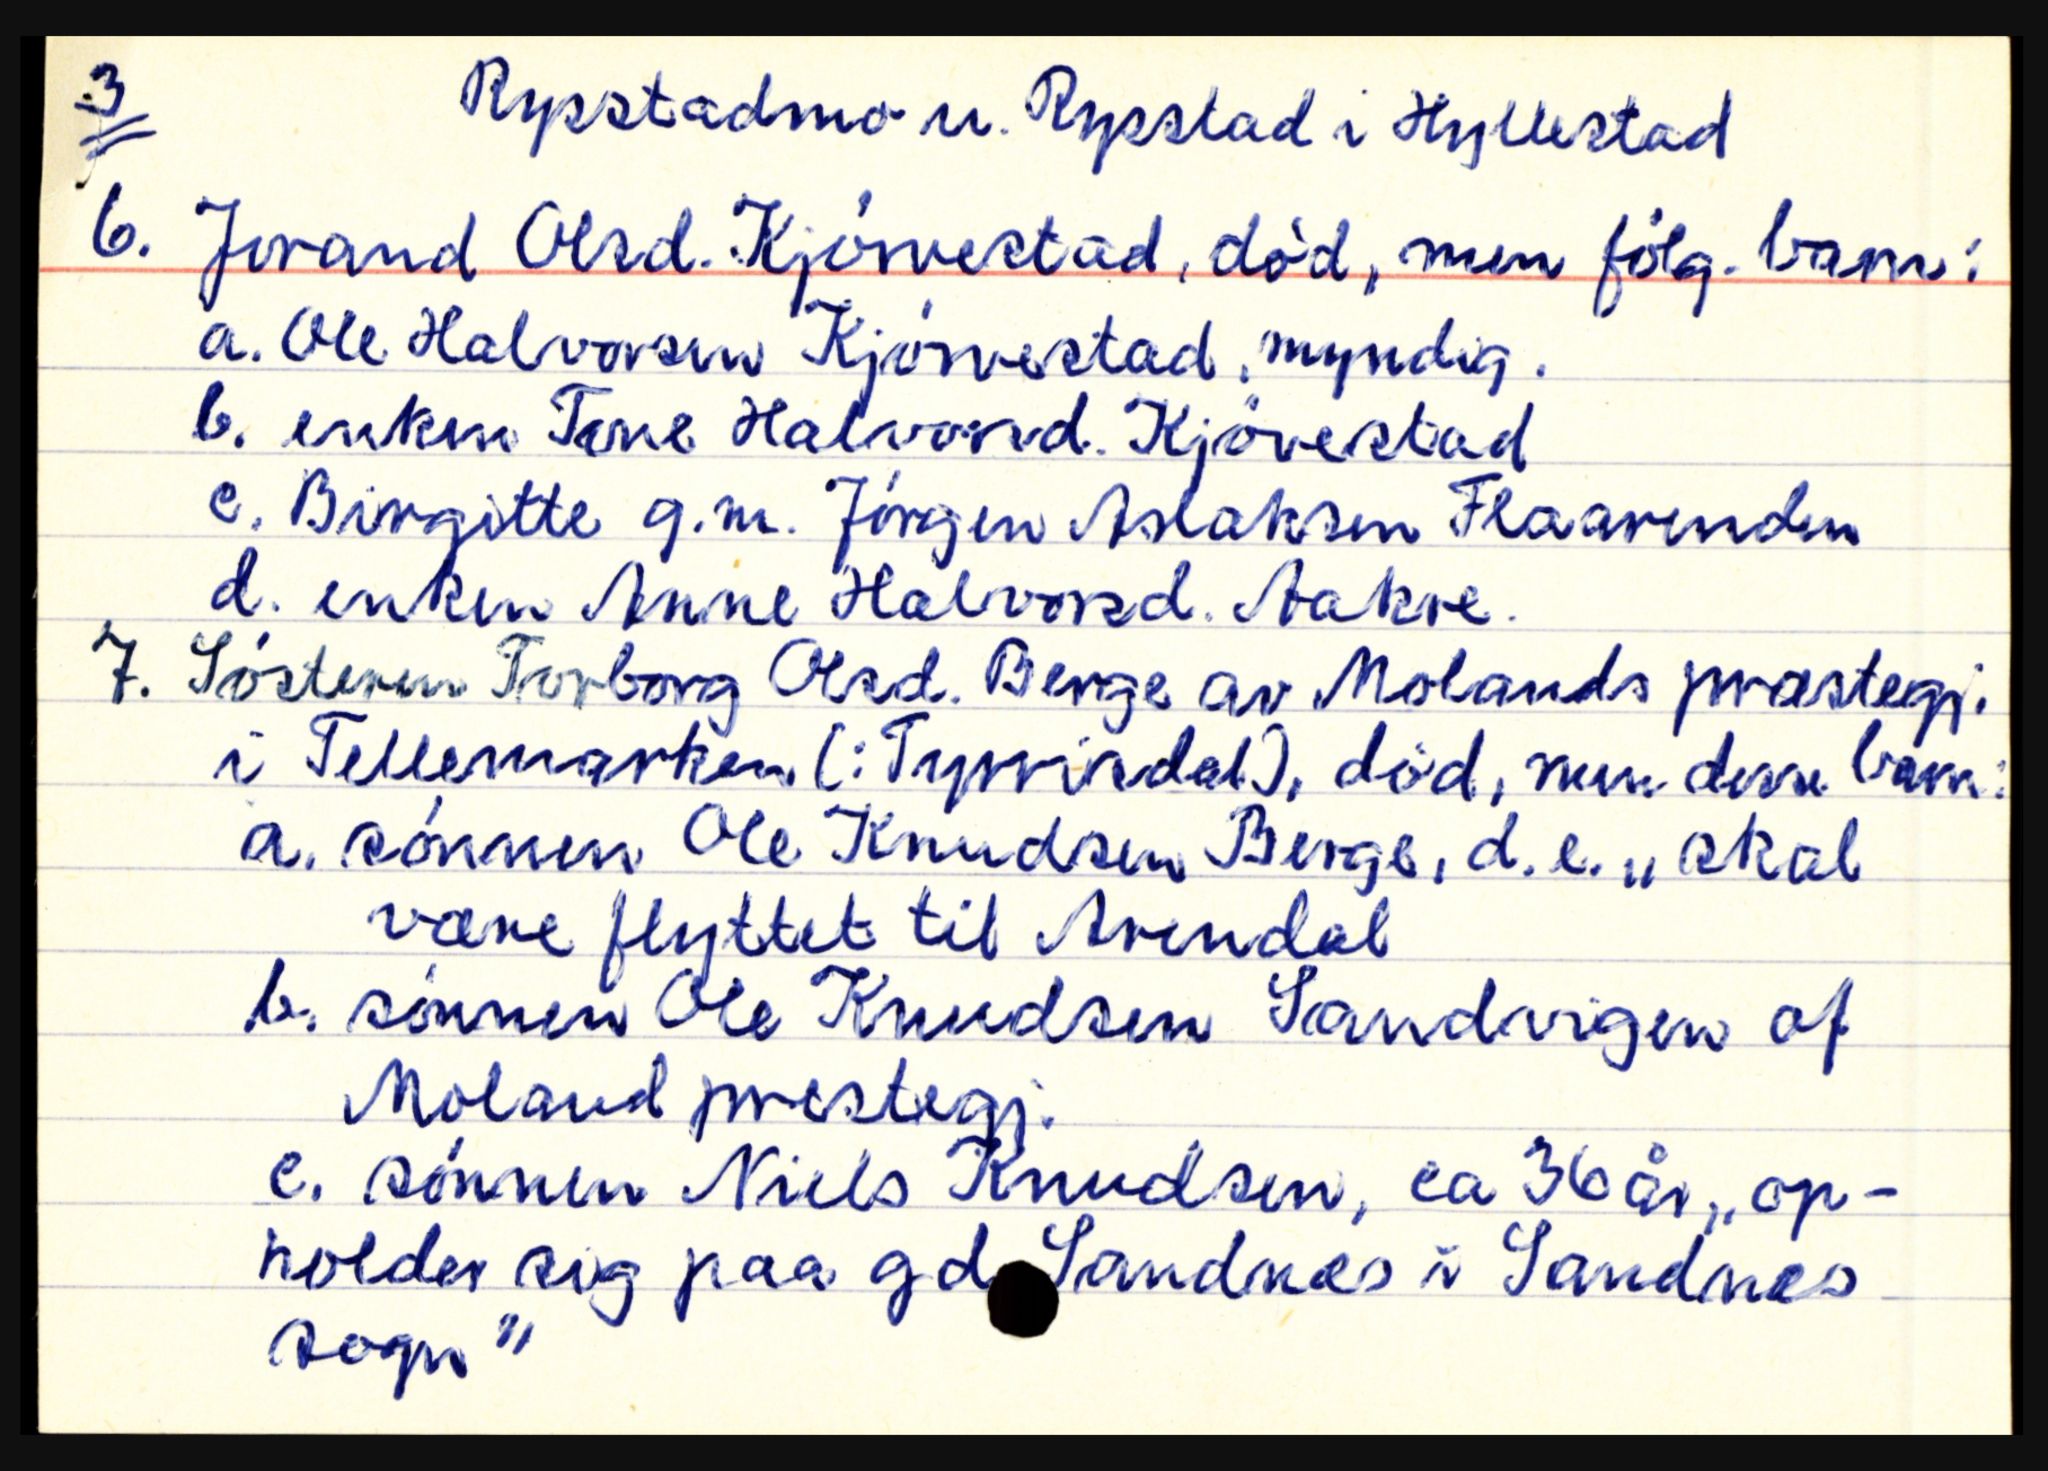 3 Rysstadmo u. Rysstad i Hyllestad
6. Jorand Olsd. Kjörvestad, död, men fölg. barn:
a. Ole Halvorsen Kjörvestad, myndig.
b. enken Tone Halvorsd. Kjövestad
c. Birgitte g.m. Jörgen Aslaksen Flaarenden
d. enken Anne Halvorsd. Aakre.
7. Sösteren Torborg Olsd. Berge av Molands præstegj.
i Tellemarken (: Tyrvisdal), död, men disse barn:
a. sönnen Ole Knudsen Berge, d.e. „skal
være flyttet til Arendal
b. sönnen Ole Knudsen Sandvigen af
Moland prestegj.
c. sönnen Niels Knudsen, ca 36 år, „op-
holder sig paa gd. Sandnæs i Sandnæs
sogn"